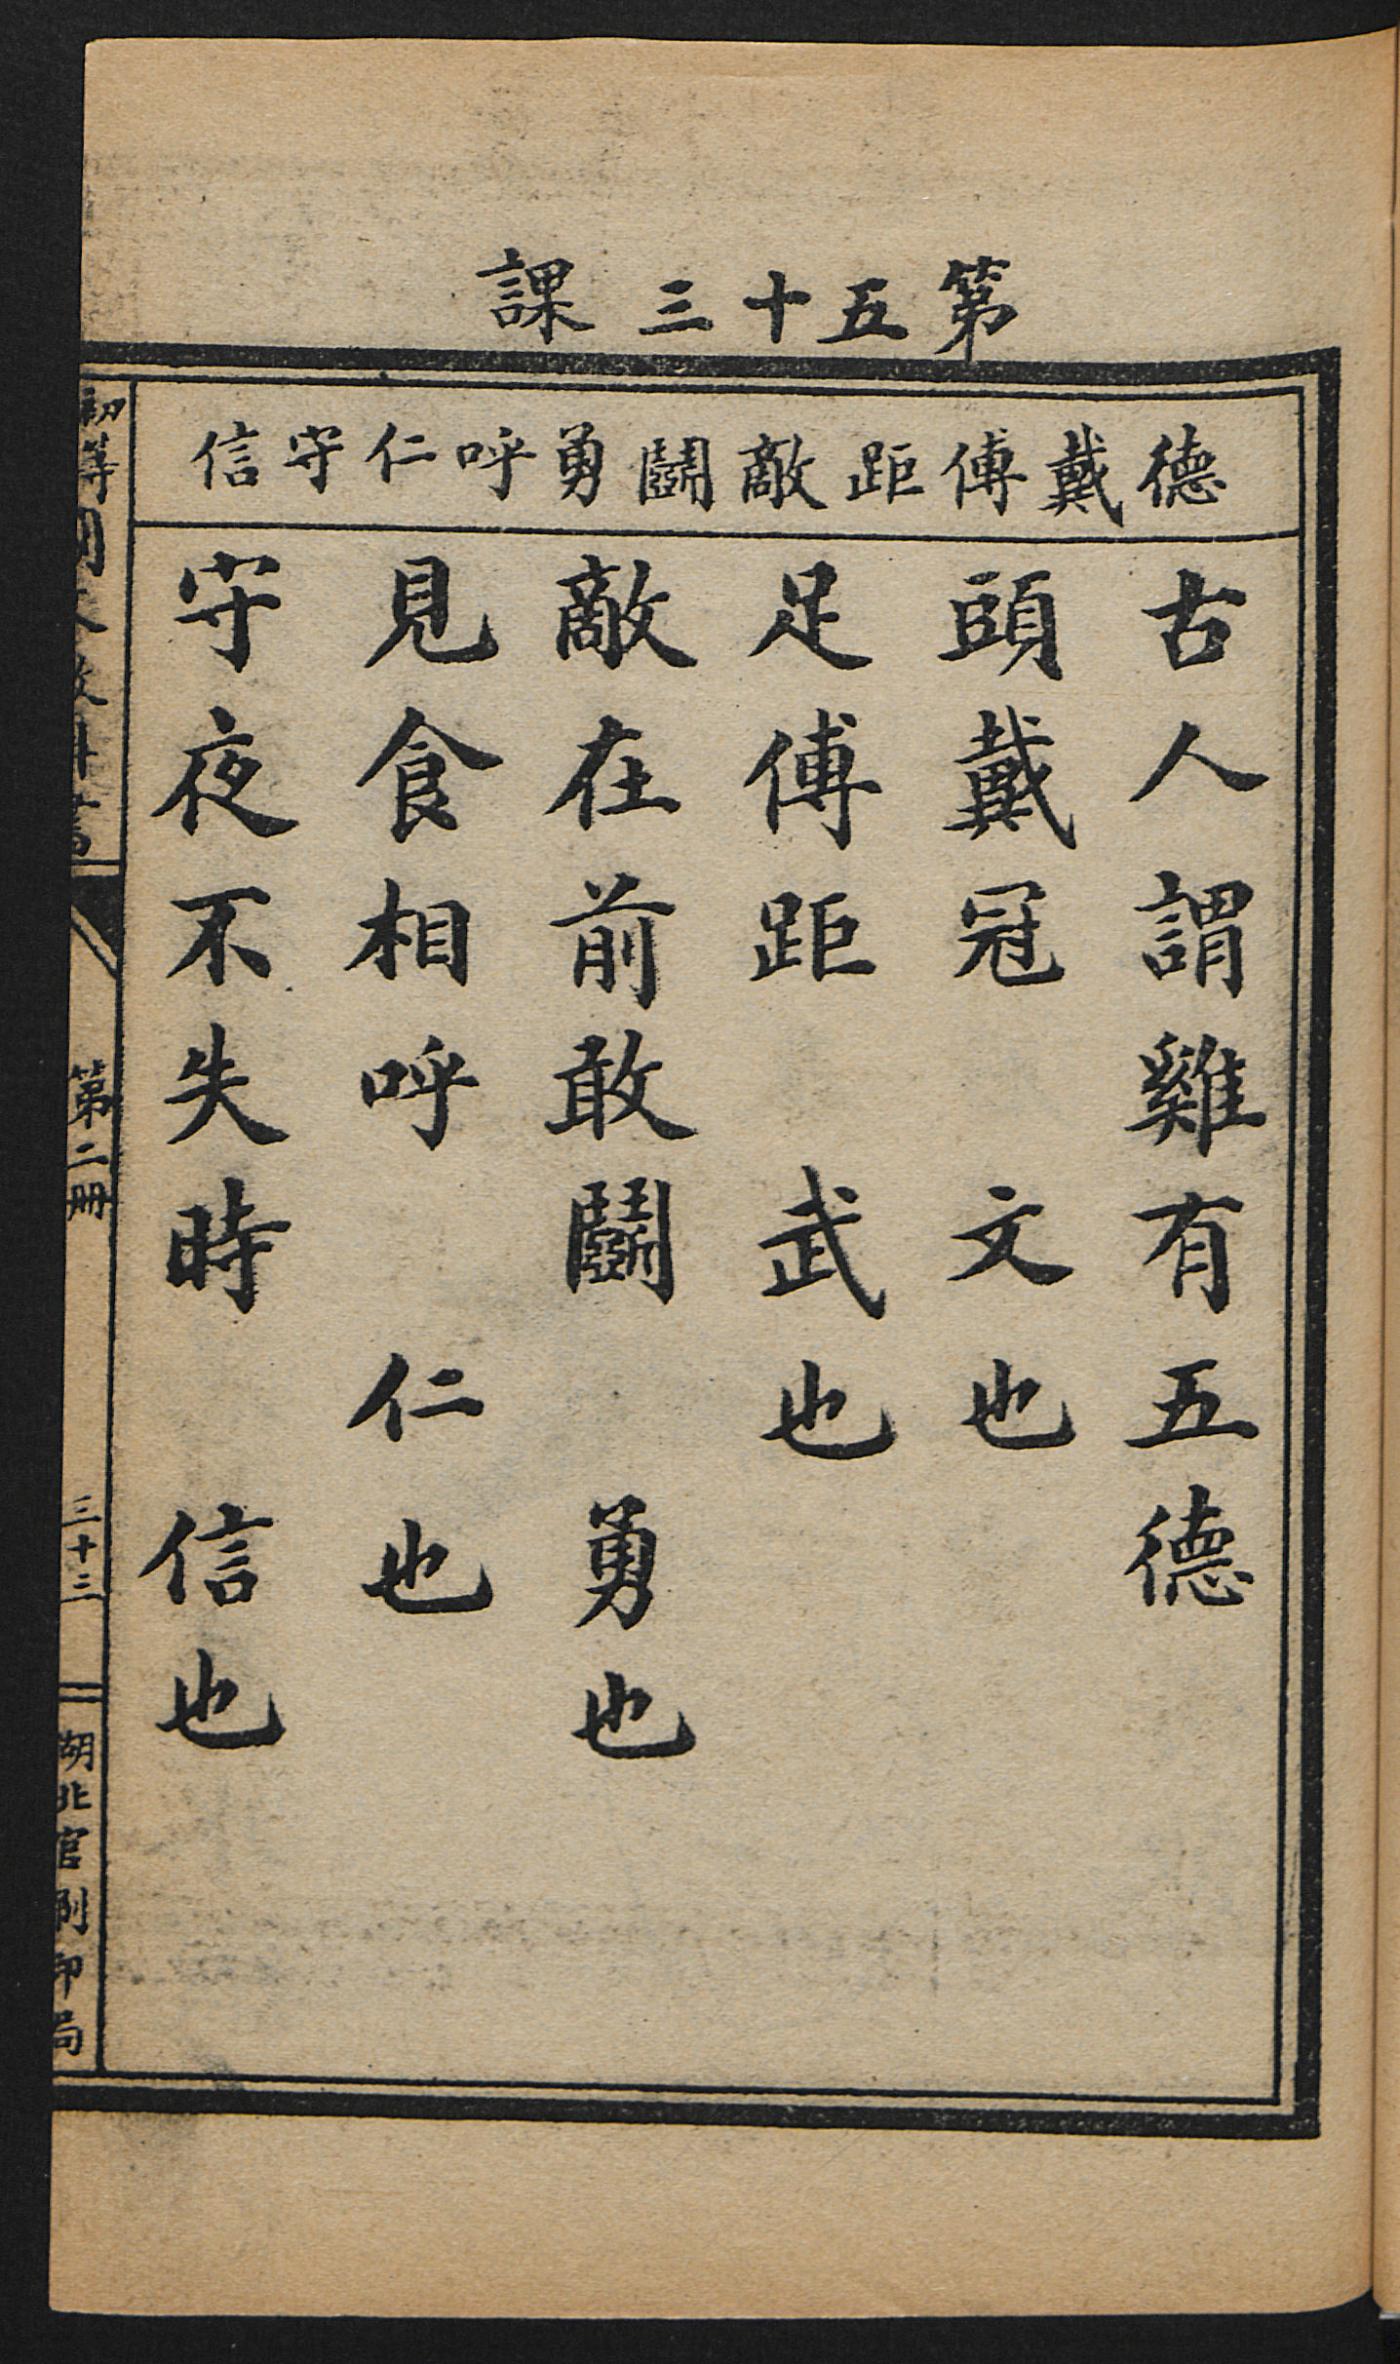 第五十三課
德戴傅距敵鬬勇呼仁守信
古人謂雞有五德
頭戴冠　文也
足傅距　武也
敵在前敢鬬　勇也
見食相呼　仁也
守夜不失時　信也
初等國文教科書
第二册
三十三
湖北官刷印局